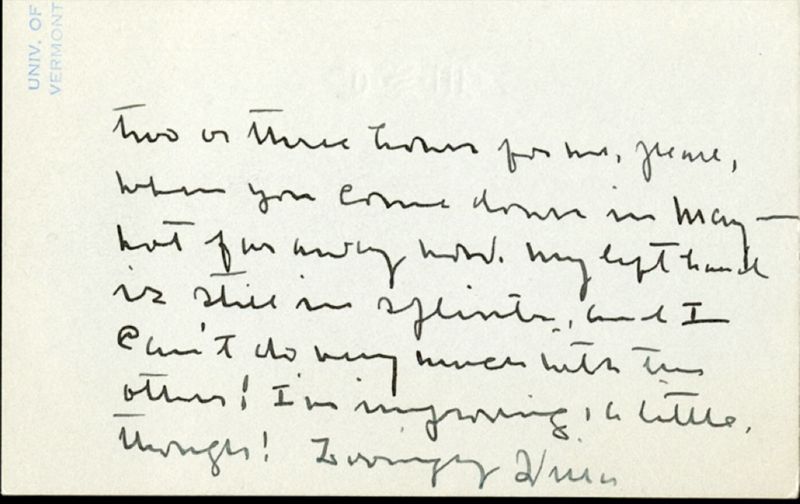 UNIV. OF
VERMONT
two or three hours for me, please,
when you come down in May —
not far away now. My left hand
is still in splints, and I
can't do very much with the
other! I'm improving, a little,
though! Lovingly